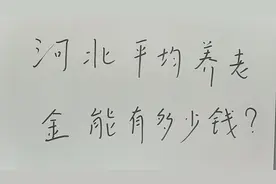 河北平均养老
金能有多少钱?